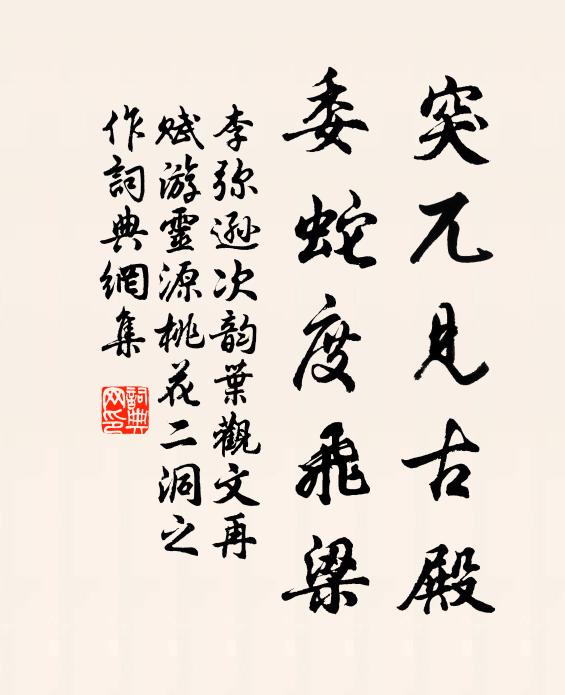 突兀見古殿
委蛇度飛梁
李弥遜次韵葉觀文再
赋游靈源桃花二洞之
作詞典網集
詞典网印